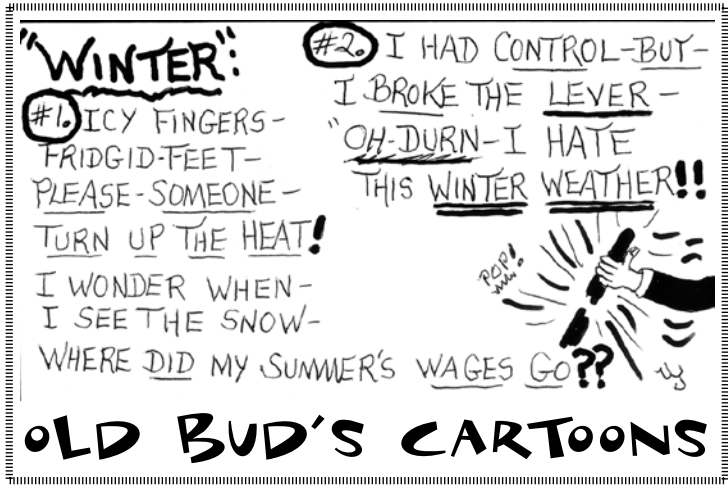 "WINTER":
#1. ICY FINGERS-
FRIDGID-FEET-
PLEASE-SOMEONE-
TURN UP THE HEAT!
I WONDER WHEN-
I SEE THE SNOW-
WHERE DID MY SUMMER'S WAGES GO??
#2. I HAD CONTROL-BUT-
I BROKE THE LEVER-
"OH-DURN-I HATE
THIS WINTER WEATHER!!
POP!
OLD BUD'S CARTOONS